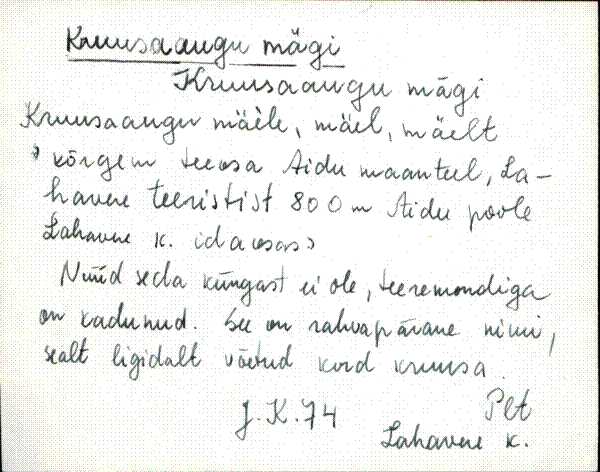 Kruusaaugu mägi
Kruusaaugu mägi
Kruusaaugu mäele, mäel, mäelt
kõrgem teeosa Aidu maanteel, La-
havere teeristist 800 m Aidu poole
Lahavere k. idaosas>
Nüüd seda küngast ei ole, teeremondiga
on kadunud. See on rahvapärane nimi,
sealt ligidalt võetud kord kruusa.
J. K. 74 Plt
Lahavere k.